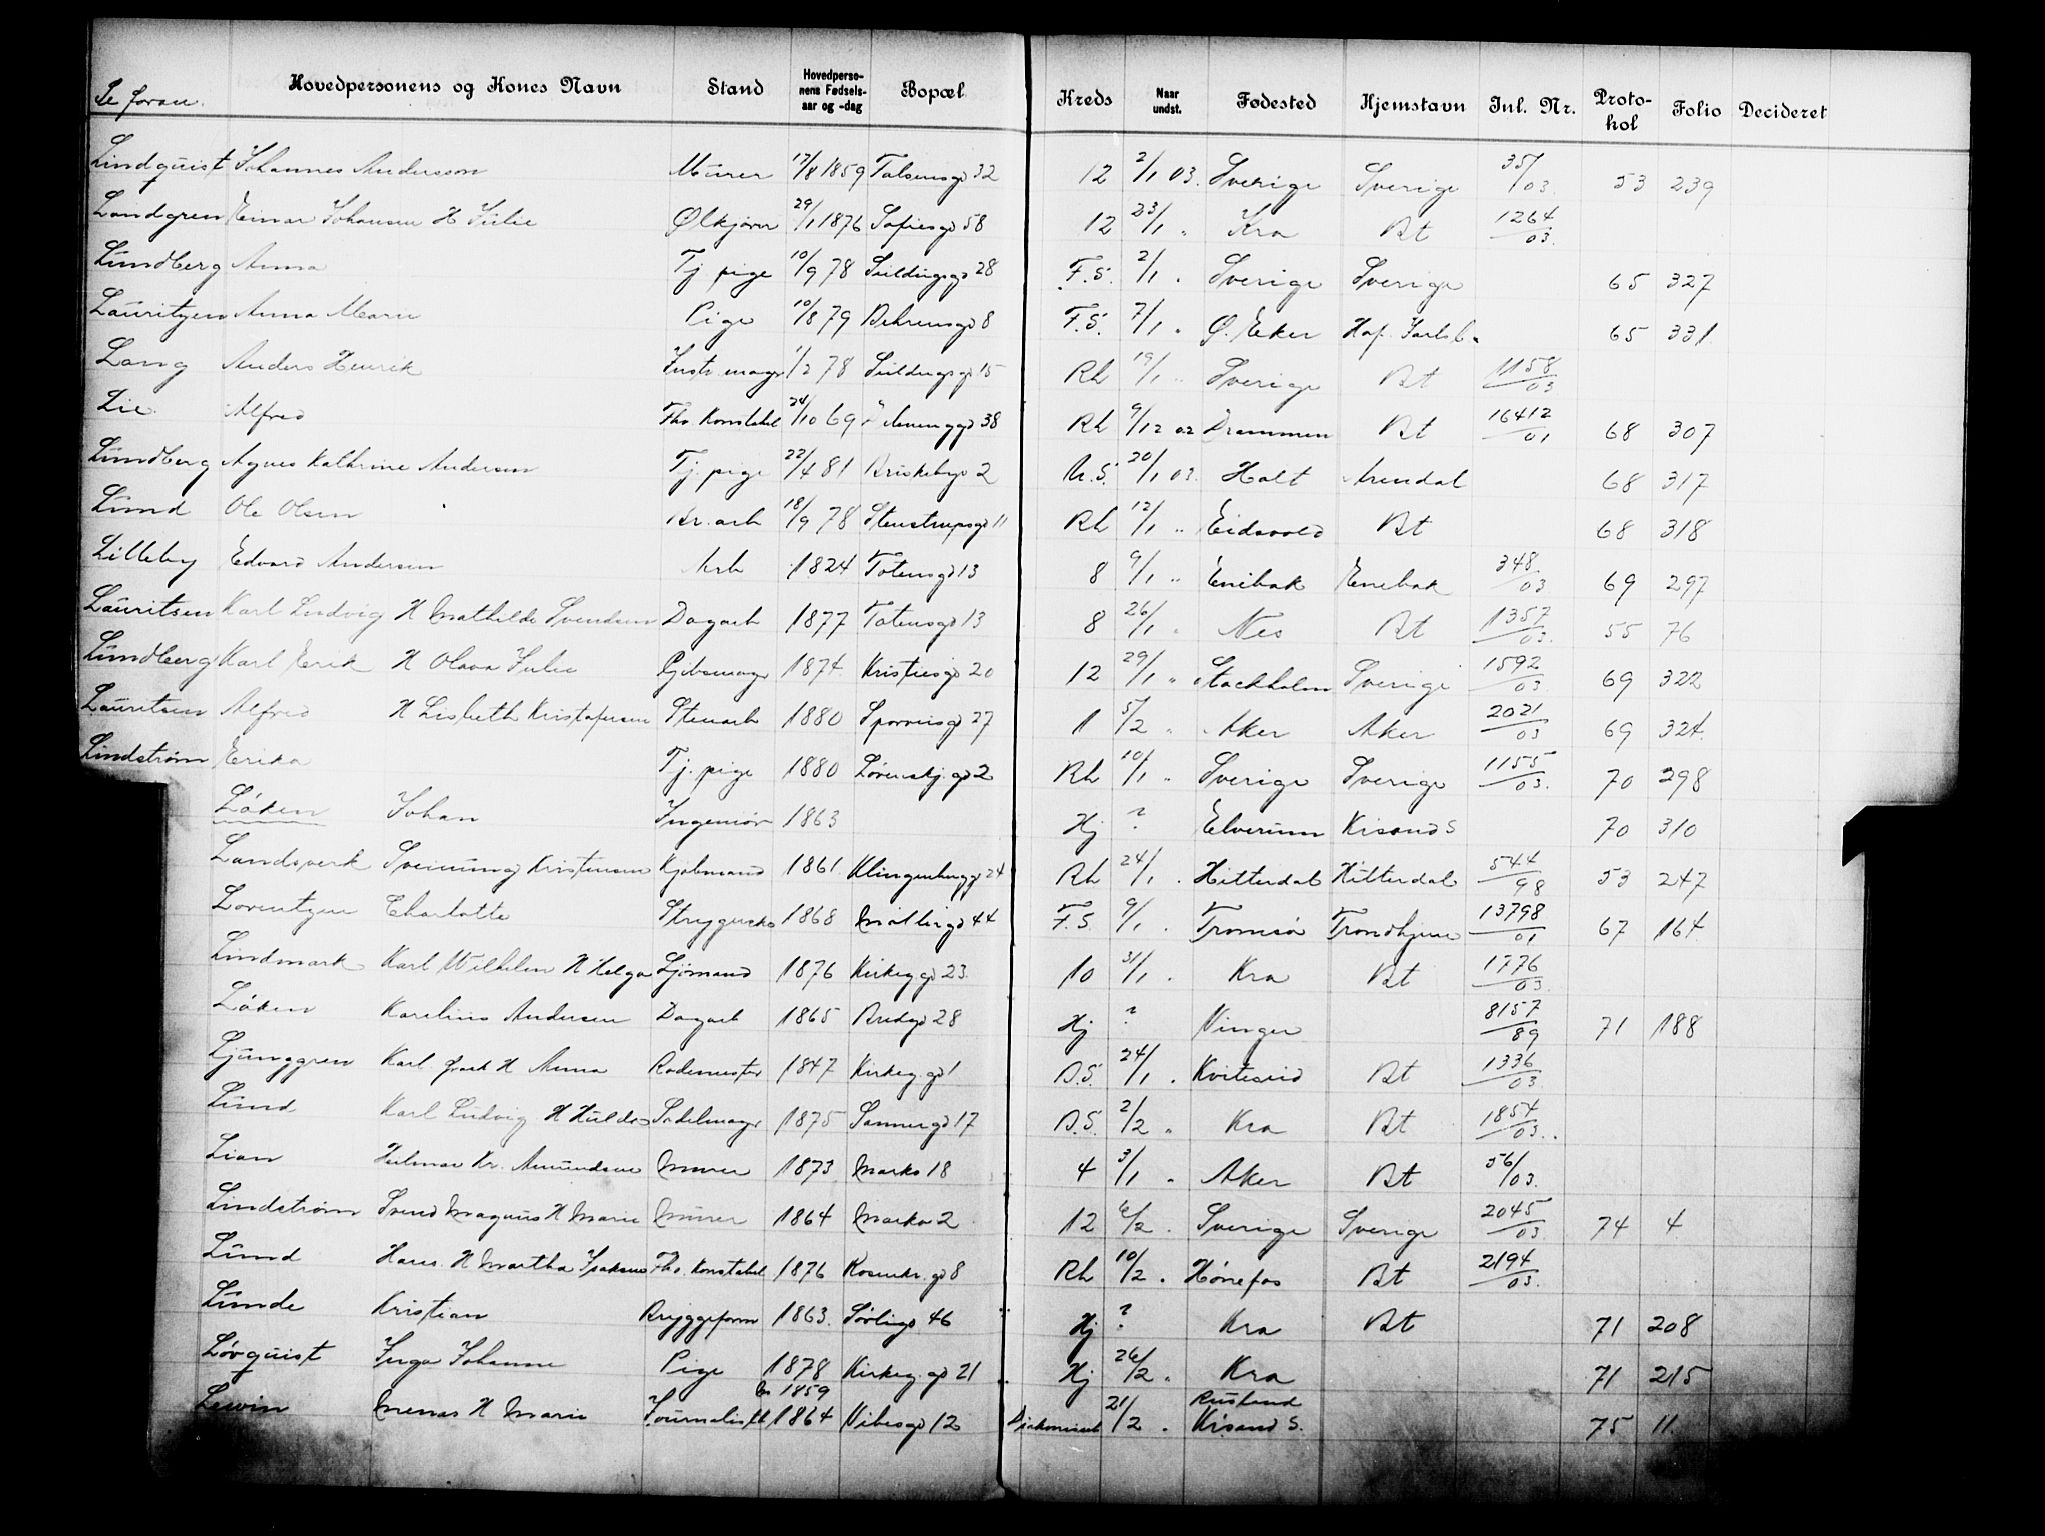 Se foran.
Hovedpersonens og Kones Navn Stand Hovedpersonens Fødselsaar og -dag Bopæl Kreds Naar undst. Fødested Hjemstavn Inl. Nr. Protokol Folio Decideret
Lindquist Johannes Andersson Murer 17/8 1859 Talsensgd 32 12 2/1 03. Sverige Sverige 35/03. 53 239
Landgren Einar Johansen H Julie Ølkjører 29/1 1876 Sofiesgd 58 12 23/1 " Kra Bt 1264/03.
Lundberg Anna Tj. pige 10/9 78 Suldingsgd 28 F.S. 2/1 " Sverige Sverige 65 327
Lauritzen Anna Marie Pige 10/8 79 Behrensgd 8 F.S. 7/1 " Ø. Eker Haf. Jarlsb. 65 331
Lang Anders Henrik Instr. mager 1/2 78 Suldingsgd 15 Rh 19/1 " Sverige Bt 1158/03
Lie Alfred Fhv. Konstabel 24/10 69 38 Rh 9/12 02 Drammen Bt 16412/01 68 307
Lundberg Agnes Kathrine Andersen Tj. pige 22/4 81 Briskebyv 2 U.S. 20/1 03. Holt Arendal 68 317
Lund Ole Olsen Br. arb 18/9 78 Stenstrupsgd 11 Rh 12/1 " Eidsvold Bt 68 318
Lilleby Edvard Andersen Arb 1824 Totensgd 13 8 9/1 " Enebak Enebak 348/03 69 297
Lauritsen Karl Ludvig H Mathilde Svendsen Dagarb 1877 Totensgd 13 8 26/1 " Nes Bt 1357/03. 55 76
Lundberg Karl Erik H Olava Julie Gibsmager 1874. Kristiesgd 20 12 29/1 " Stockholm Sverige 1592/03. 69 322
Lauritsen Alfred H Lisbeth Kristofersen Stenarb 1880 Sporveisgd 27 1 5/2 " Aker Aker 2021/03 69 324.
Lindstrøm Erika Tj. pige 1880 Løvenskj. gd 2 Rh 10/1 " Sverige Sverige 1155/03. 70 298
Løken Johan Ingeniør 1863 Hj ? Elverum Krisand S 70 310
Landsverk Sveinung Kristensen Kjøbmand 1861. Klingenbergg 24 Rh 24/1 . Hitterdal Hitterdal 544/98 53 247
Lorentzen Charlotte Strygerske 1868 Møllergd 44 F.S. 9/1 . Tromsø Trondhjem 13798/01 67 164.
Lindmark Karl Wilhelm H Helga Sjømand 1876 Kirkeg gd 23. 10 31/1 . Kra Bt 1776/03.
Løken Karelius Andersen Dagarb 1865 Bredgd 28 Hj ? Vinger 8157/89 71 188
Ljunggren Karl H Anna Rodemester 1847 Kirkeg. gd 1 B.S. 24/1 . Kviteseid Bt 1336/03.
Lund Karl Ludvig H Hulda Sadelmager 1875 Sannergd 17 B.S. 2/2 " Kra Bt 1854/03.
Lian Hilmar Kr. Amundsen Murer 1873 Markv 18 4 3/1 " Aker Bt 56/03.
Lindstrøm Svend Magnus H Marie Murer 1864 Markv 2 12 6/2 . Sverige Sverige 2045/03. 74 4
Lund Hans. H Martha Isaksen Fhv. Konstabel 1876 Rosenkr. gd 8 Rh 10/2 . Hønefos Bt 2194/03.
Lunde Kristian Bryggeform 1863. Sørligd 46 Hj ? Kra Bt 71 208
Løvquist Inga Johanne Pige 1878 Kirkeg. gd 21 Hj 26/2 " Kra 71 215
Lewin Menas H Marie Journalist 1864 1859 Vibesgd 12 Diakonisseh 21/2 . Rusland Krisand S. 75 11.